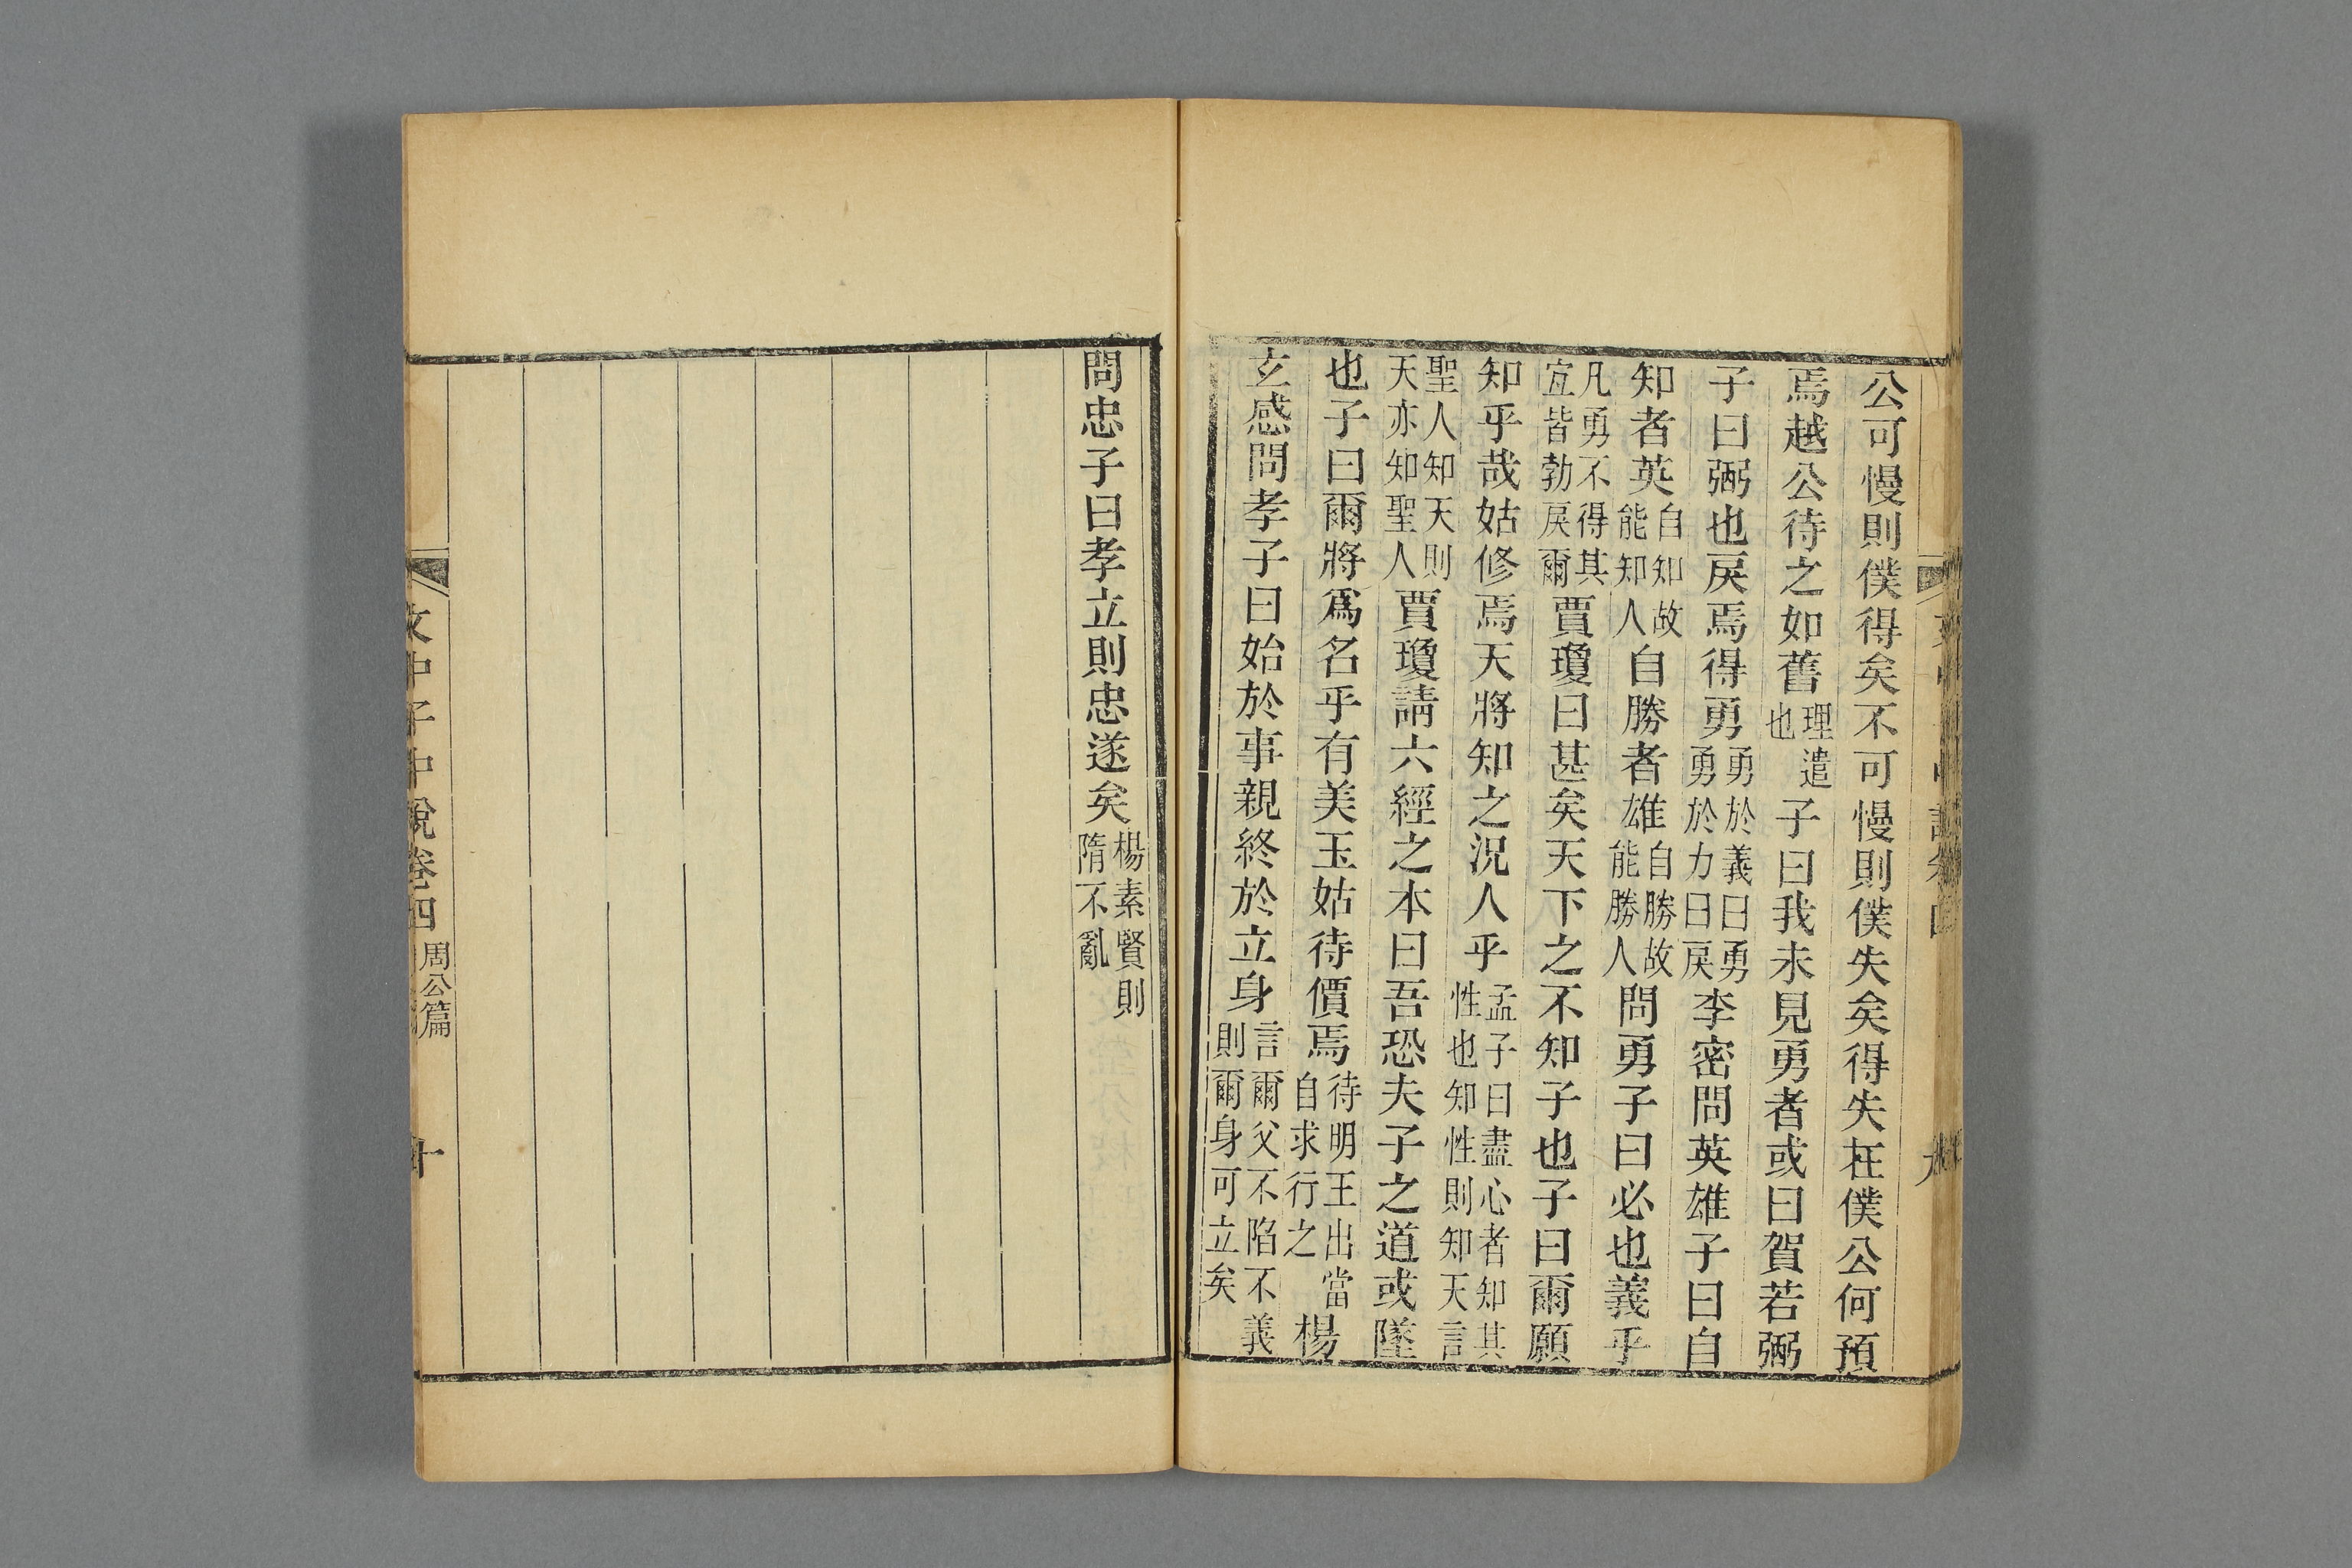 公可慢則僕得矣不可慢則僕失矣得失在僕公何預
焉越公待之如舊理遣也子曰我未見勇者或曰賀若弼
子曰弼也戾焉得勇勇於義曰勇勇於力曰戾李密問英雄子曰自
知者英自知故能知人自勝者雄自勝故能勝人問勇子曰必也義乎
凡勇不得其宜皆勃戾爾賈瓊曰甚矣天下之不知子也子曰爾願
知乎哉姑修焉天將知之況人乎孟子曰盡心者知其性也知性則知天言
聖人知天則天亦知聖人賈瓊請六經之本曰吾恐夫子之道或墜
也子曰爾將爲名乎有美玉姑待價焉待明王出當自求行之楊
玄感問孝子曰始於事親終於立身言爾父不陷不義則爾身可立矣
問忠子曰孝立則忠遂矣楊素賢則隋不亂
文中子中說卷四 周公篇 十